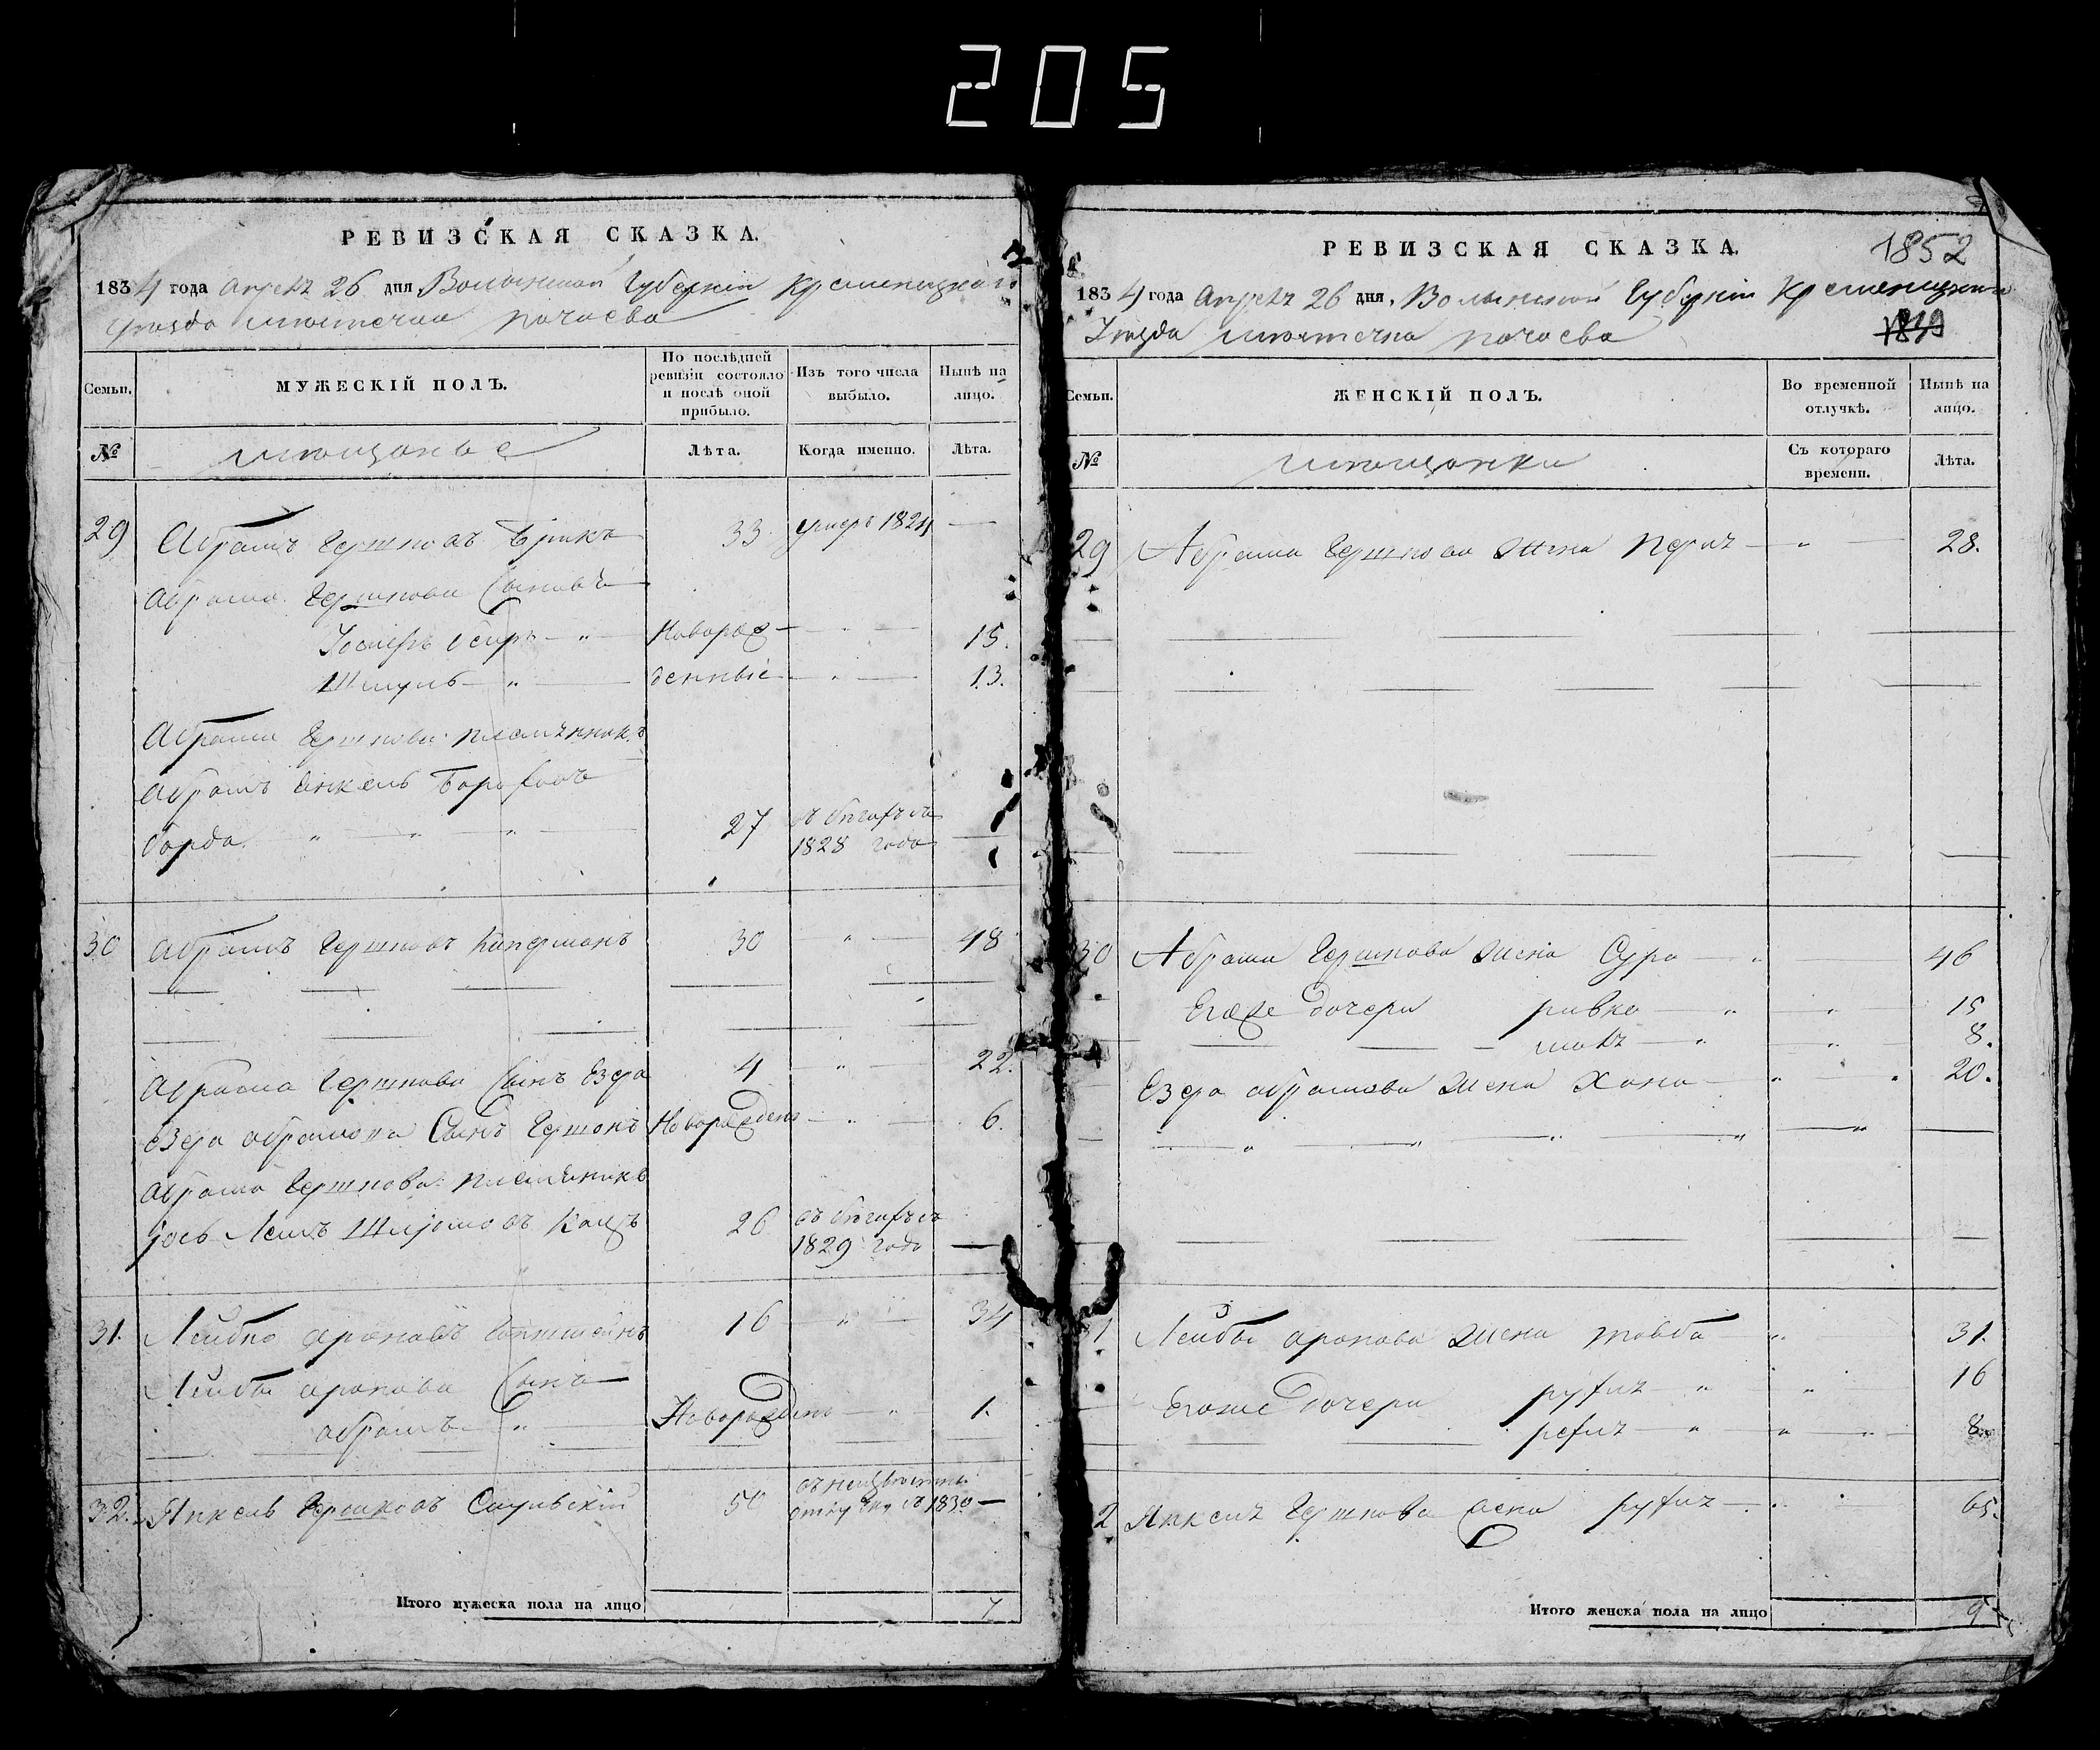 205
РЕВИЗСКАЯ СКАЗКА.
1834 года Апреля 26 дня Волынской Губернии Кременецкаго
уезда местечка почаева
Семьи.
МУЖЕСКІЙ ПОЛЪ.
По послѣдней ревизіи состояло и послѣ оной прибыло.
Изъ того числа выбыло.
Нынѣ на лицо.
№
мещанье
Лѣта.
Когда именно.
Лѣта.
29 Абрамъ Гершковъ 33 умеръ 1824 —
Абрама Гершкова Сыновья
Иосифъ Новорож- 15.
Шмуль " денные 13.
Абрама Гершкова племянникъ
Абрамъ Янкель
борда " " " 27 въ бегахъ съ
1828 года
30 Абрамъ Гершковъ Киперманъ 30 " 48
Абрама Гершкова Сынъ Езра 4 " 22.
Езра абрамова Сынъ Гершонъ Новорожденъ " 6.
Абрама Гершкова племяникъ
Іось Шлиомовъ Кацъ 26 въ бегахъ съ
1829 года —
31. Лейба ароновъ 16 " 34
Лейбы аронова Сынъ
абрамъ " Новорожденъ " 1.
32. Янкель Гершковъ 50
отлучки съ 1830 —
Итого мужеска пола на лицо 7
РЕВИЗСКАЯ СКАЗКА.
1852
1834 года Апреля 26 дня. Волынской Губернии Кременецкаго
Уезда местечка почаева
1849
Семьи.
ЖЕНСКІЙ ПОЛЪ.
Во временной отлучкѣ.
Нынѣ на лицо.
№
мещанки
Съ котораго времени.
Лѣта.
29 Абрама Гершкова жена Перля " 28.
30 Абрама Гершкова жена Сура " 46
Егоже дочери ривка " " 15
" " 8.
Езра абрамова жена Хана " 20.
1 Лейбы аронова жена товба " 31.
Егоже дочери рухля " " 16
рехля " " " 8
2 Янкеля Гершкова жена рухля " 65.
Итого женска пола на лицо 9